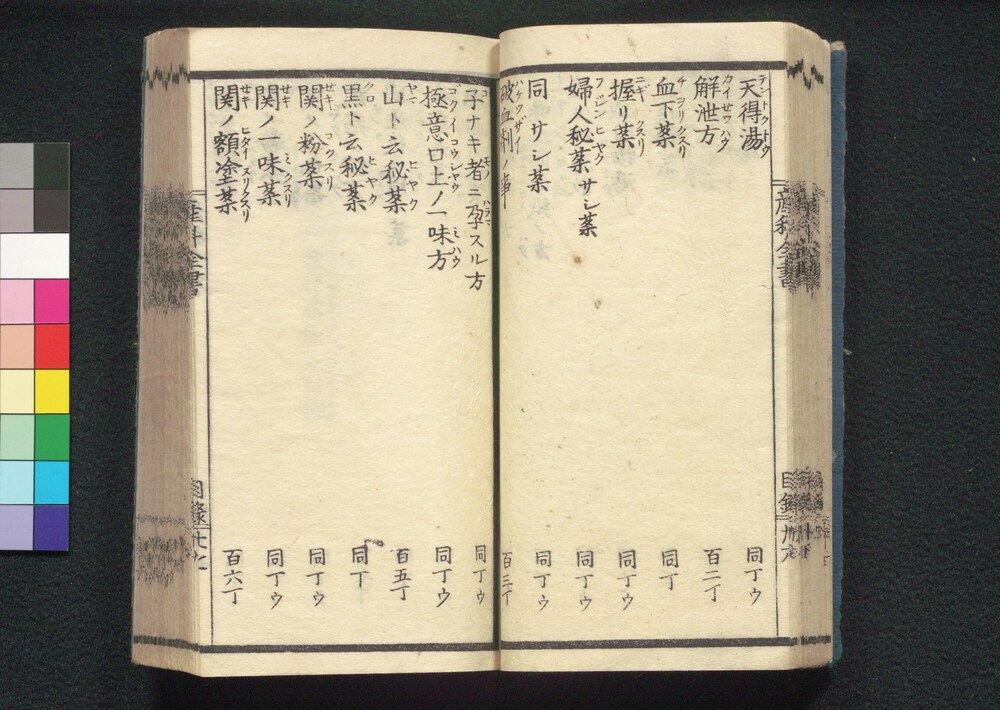 天得湯 同丁ウ
解泄方 百二丁
血下薬 同丁
握リ薬 同丁ウ
婦人秘薬サシ薬 同丁ウ
同サシ薬 同丁ウ
破血剤ノ事 百三丁
子ナキ者ニ孕スル方 同丁ウ
極意口上ノ一味方 同丁ウ
山ト云秘薬 百五丁
黒ト云秘薬 同丁
関ノ粉薬 同丁ウ
関ノ一味薬 同丁ウ
関ノ額塗薬 百六丁
産科全書
目録
産科全書
目録